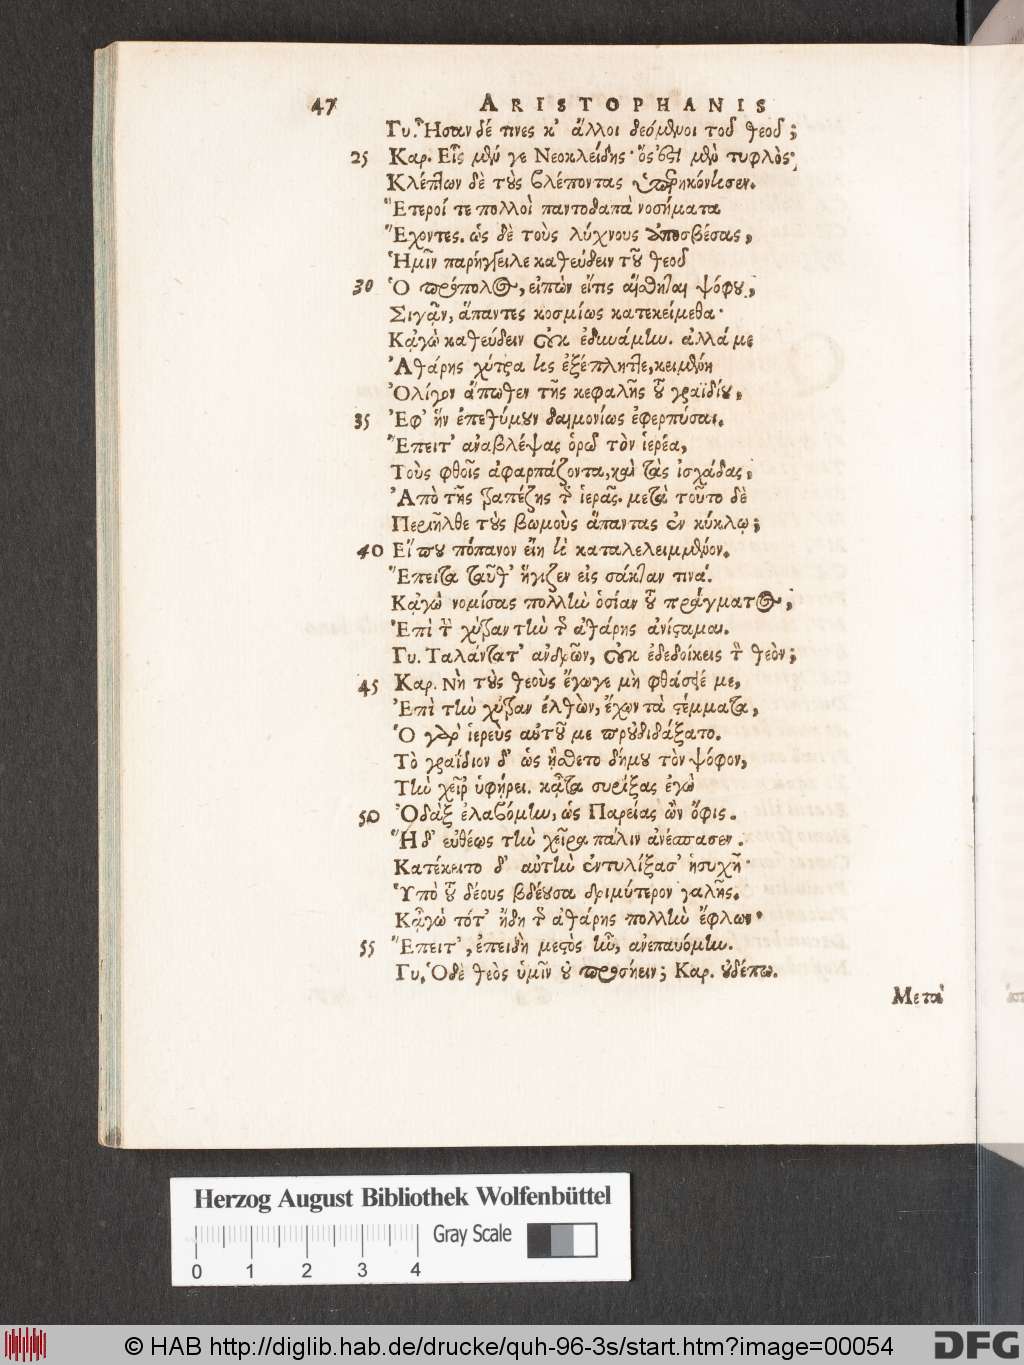 47 ARISTOPHANIS
Γυ. Ἦσαν δέ τινες κ' ἄλλοι δεόμενοι τοῦ θεοῦ;
25 Καρ. Εἷς μέν γε Νεοκλείδης· ὅς ἐστι μὲν τυφλὸς,
Κλέπτων δὲ τοὺς βλέποντας ὑπερηκόντισεν.
Ἕτεροί τε πολλοὶ παντοδαπὰ νοσήματα
Ἔχοντες. ὡς δὲ τοὺς λύχνους ἀποσβέσας,
Ἡμῖν παρήγγειλε καθεύδειν τοῦ θεοῦ
30 Ὁ πρόπολος, εἰπὼν εἴτις αἴσθηται ψόφου,
Σιγᾷν, ἅπαντες κοσμίως κατεκείμεθα·
Κᾀγὼ καθεύδειν οὐκ ἐδυνάμην. ἀλλά με
Ἀθάρης χύτρα τις ἐξέπληττε, κειμένη
Ὀλίγον ἄπωθεν τῆς κεφαλῆς τοῦ γραϊδίου,
35 Ἐφ' ἣν ἐπεθύμουν δαιμονίως ἐφερπύσαι.
Ἔπειτ' ἀναβλέψας ὁρῶ τὸν ἱερέα,
Τοὺς φθοῖς ἀφαρπάζοντα, καὶ τὰς ἰσχάδας,
Ἀπὸ τῆς τραπέζης τῆς ἱερᾶς. μετὰ τοῦτο δὲ
Περιῆλθε τοὺς βωμοὺς ἅπαντας ἐν κύκλῳ;
40 Εἴ που πόπανον εἴη τὶ καταλελειμμένον.
Ἔπειτα ταῦθ' ἥγιζεν εἰς σάκταν τινά.
Κᾀγὼ νομίσας πολλὴν ὁσίαν τοῦ πράγματος,
Ἐπὶ τὴν χύτραν τὴν τῆς ἀθάρης ἀνίσταμαι.
Γυ. Ταλάντατ' ἀνδρῶν, οὐκ ἐδεδοίκεις τὸν θεόν;
45 Καρ. Νὴ τοὺς θεοὺς ἔγωγε μὴ φθάσειέ με,
Ἐπὶ τὴν χύτραν ἐλθὼν, ἔχων τὰ στέμματα,
Ὁ γὰρ ἱερεὺς αὐτοῦ με προὐδιδάξατο.
Τὸ γραΐδιον δ' ὡς ᾔσθετο δήμου τὸν ψόφον,
Τὴν χεῖρ' ὑφῄρει. κᾆτα συρίξας ἐγὼ
50 Ὀδὰξ ἐλαβόμην, ὡς Παρείας ὢν ὄφις.
Ἡ δ' εὐθέως τὴν χεῖρα πάλιν ἀνέσπασεν.
Κατέκειτο δ' αὑτὴν ἐντυλίξασ' ἡσυχῆ·
Ὑπὸ τοῦ δέους βδέουσα δριμύτερον γαλῆς.
Κᾀγὼ τότ' ἤδη τῆς ἀθάρης πολλὴν ἔφλων·
55 Ἔπειτ', ἐπειδὴ μεστὸς ἦν, ἀνεπαυόμην.
Γυ. Ὁ δὲ θεὸς ὑμῖν οὐ προσῄειν; Καρ. οὐδέπω.
Μετὰ
Herzog August Bibliothek Wolfenbüttel
Gray Scale
0 1 2 3 4
© HAB http://diglib.hab.de/drucke/quh-96-3s/start.htm?image=00054
DFG